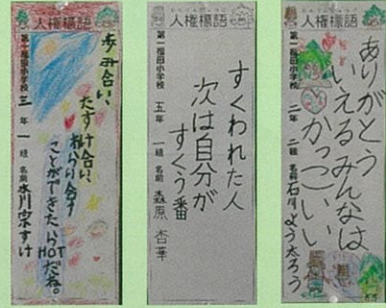 人権標語
ありがとう
いえるみんなは
かっこいい
第一福田小学校 二年 二組 名前 石川よう太ろう
人権標語
すくわれた人
次は自分が
すくう番
第一福田小学校 五年 一組 名前 森原杏華
人権標語
歩み合い
たすけ合い
ことができたらHOTだね。
第一福田小学校 三年 一組 名前